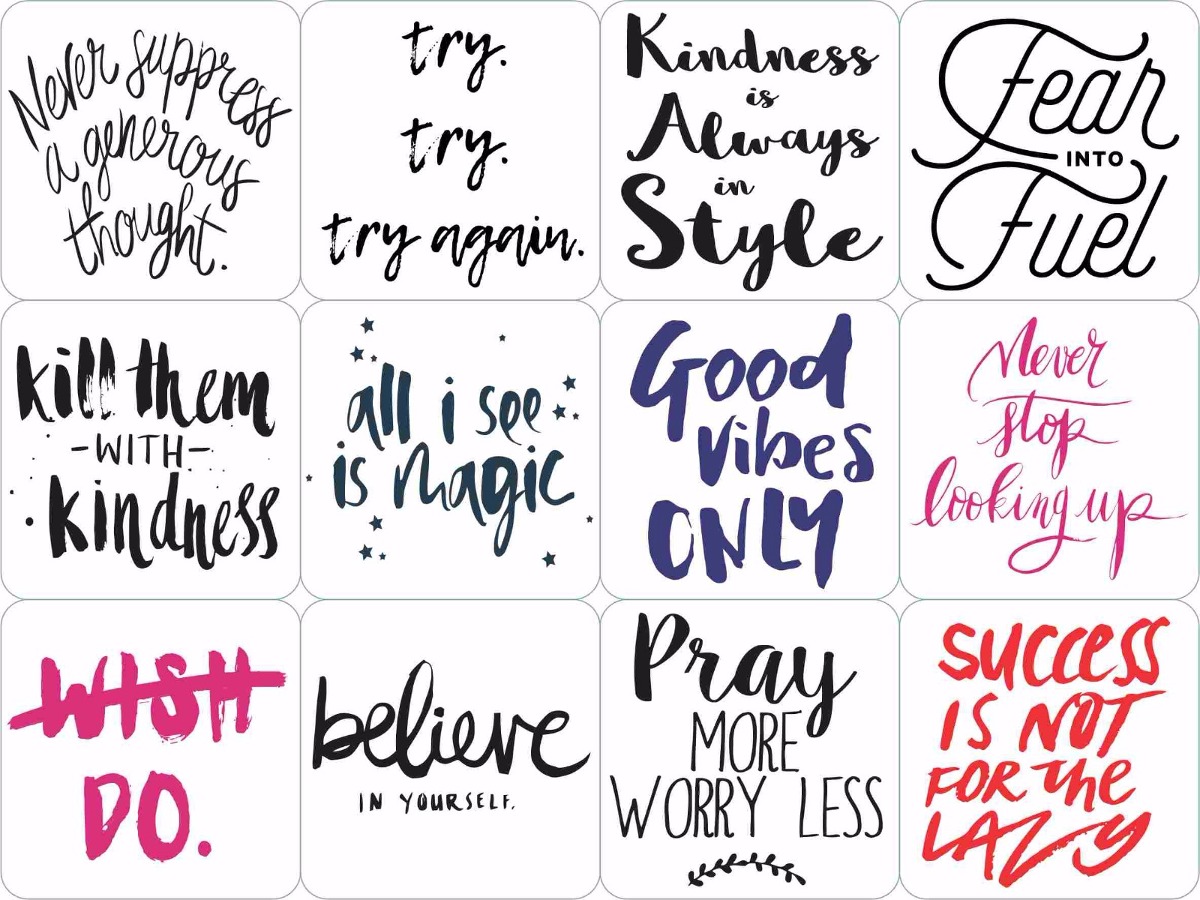 Never suppress
a generous
thought.
try.
try.
try again.
Kindness
is
Always
in
Style
Fear
INTO
Fuel
kill them
-WITH-
kindness
all i see
is magic
Good
vibes
ONLY
Never
stop
looking up
WISH
DO.
believe
IN YOURSELF.
Pray
MORE
WORRY LESS
SUCCESS
IS NOT
FOR the
LAZY